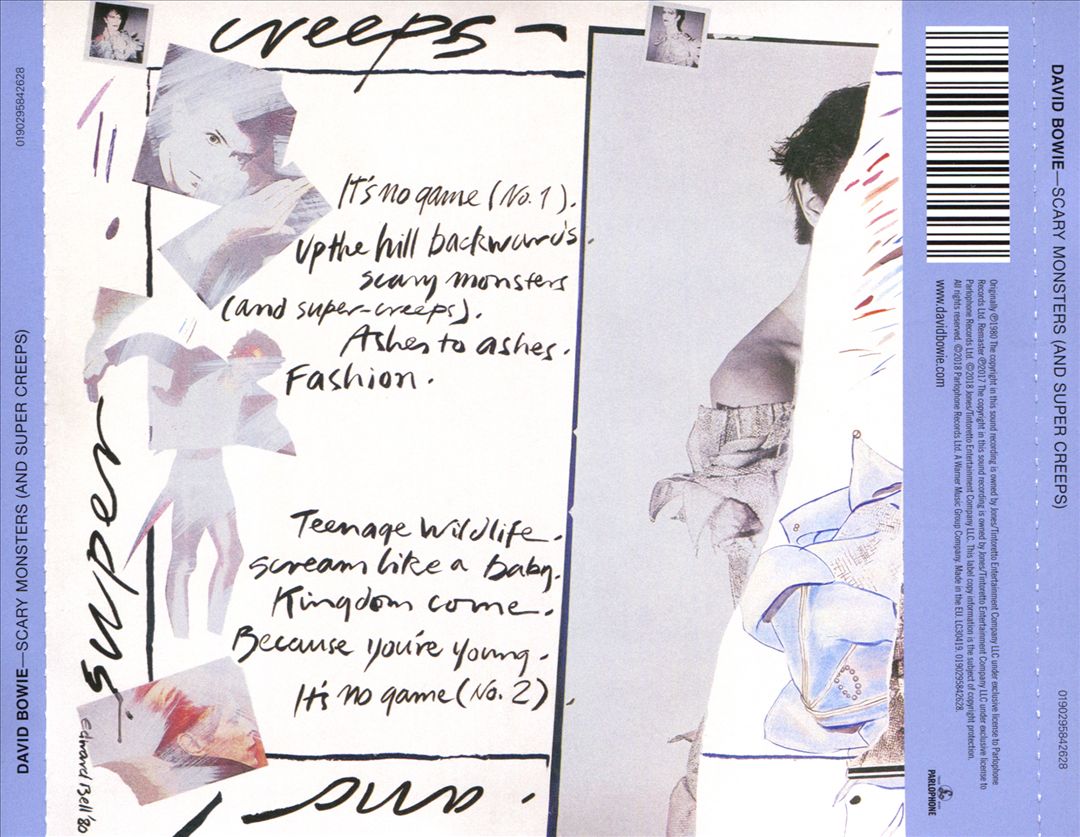 DAVID BOWIE—SCARY MONSTERS (AND SUPER CREEPS)
0190295842628
creeps –
It's no game (No. 1).
Up the hill backwards.
scary monsters
(and super-creeps).
Ashes to ashes.
Fashion.
Teenage wildlife.
scream like a baby.
Kingdom come.
Because you're young.
It's no game (No. 2).
super
and
Edward Bell '80
Originally ℗1980 The copyright in this sound recording is owned by Jones/Tintoretto Entertainment Company LLC under exclusive license to Parlophone
Records Ltd. Remaster ℗2017 The copyright in this sound recording is owned by Jones/Tintoretto Entertainment Company LLC under exclusive license to
Parlophone Records Ltd. ©2018 Jones/Tintoretto Entertainment Company LLC. This label copy information is the subject of copyright protection.
All rights reserved. ©2018 Parlophone Records Ltd. A Warner Music Group Company. Made in the EU. LC30419. 0190295842628.
www.davidbowie.com
PARLOPHONE
DAVID BOWIE—SCARY MONSTERS (AND SUPER CREEPS)
0190295842628